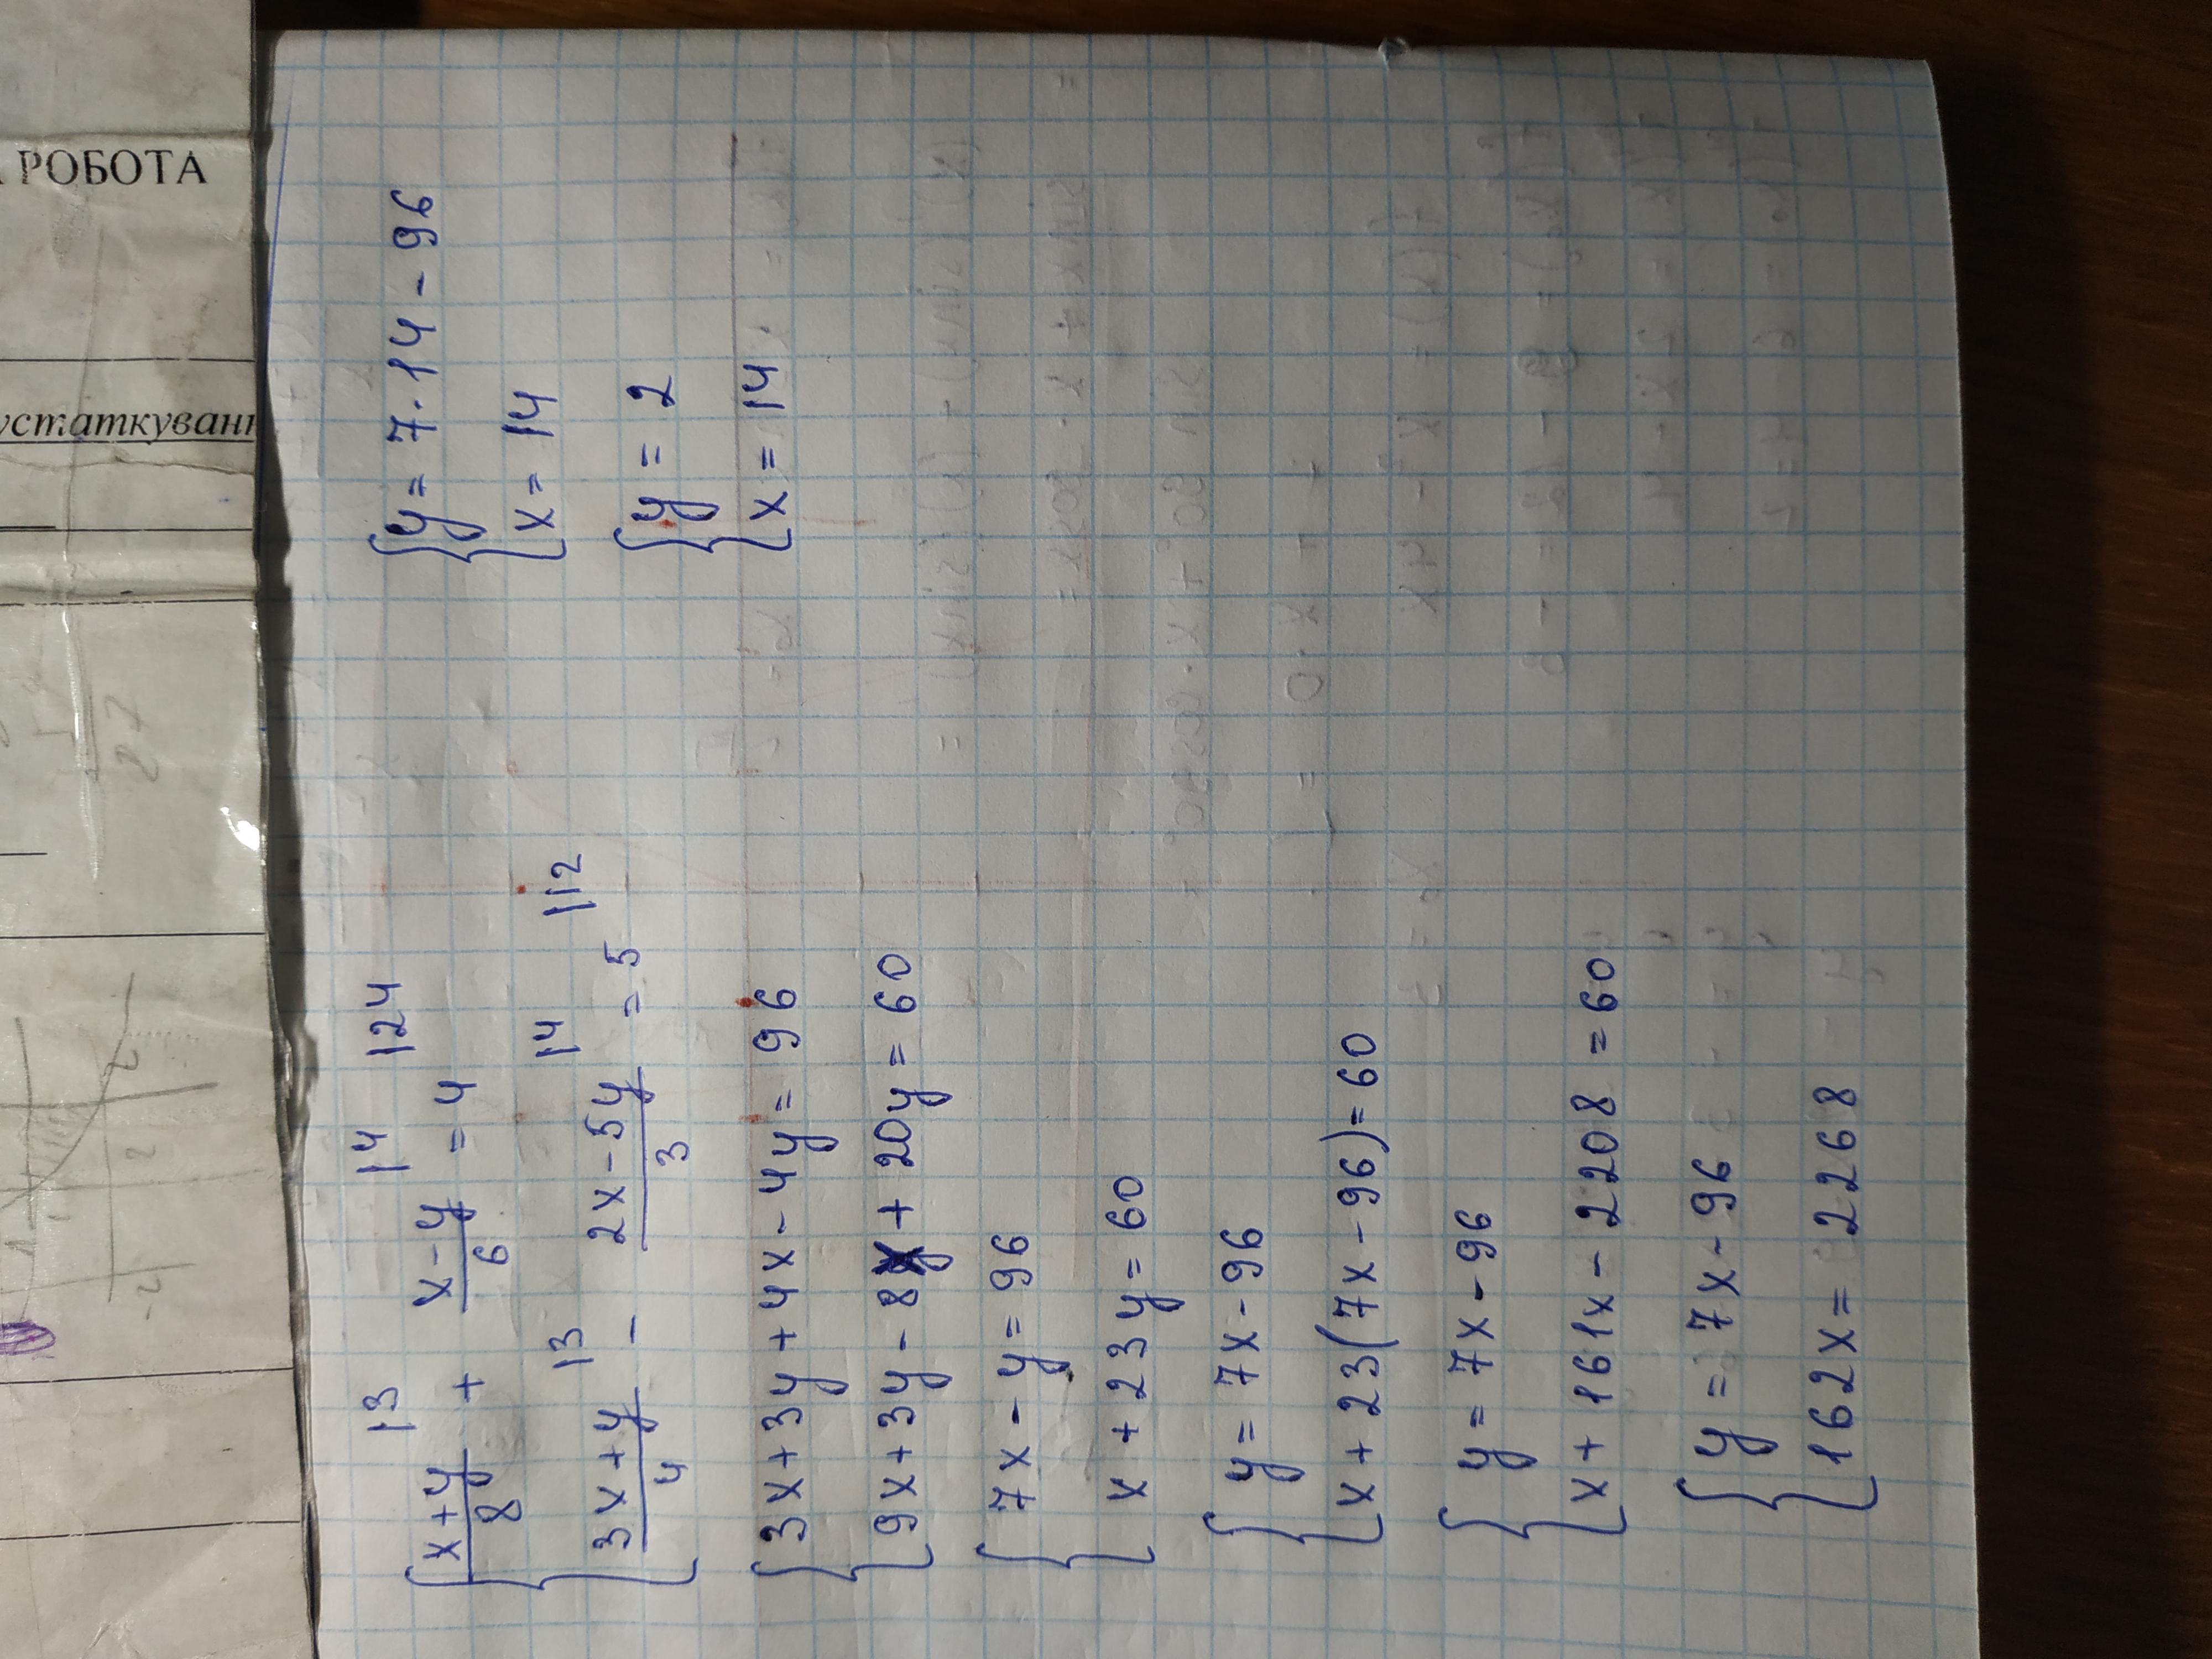 РОБОТА
устаткуванн
|3 |4 |24
{ x+y/8 + x-y/6 = 4
|3 |4 |12
3x+y/4 - 2x-5y/3 = 5
{ 3x+3y+4x-4y=96
9x+3y-8x+20y=60
{ 7x-y=96
x+23y=60
{ y=7x-96
x+23(7x-96)=60
{ y=7x-96
x+161x-2208=60
{ y=7x-96
162x=2268
{ y=7·14-96
x=14
{ y=2
x=14